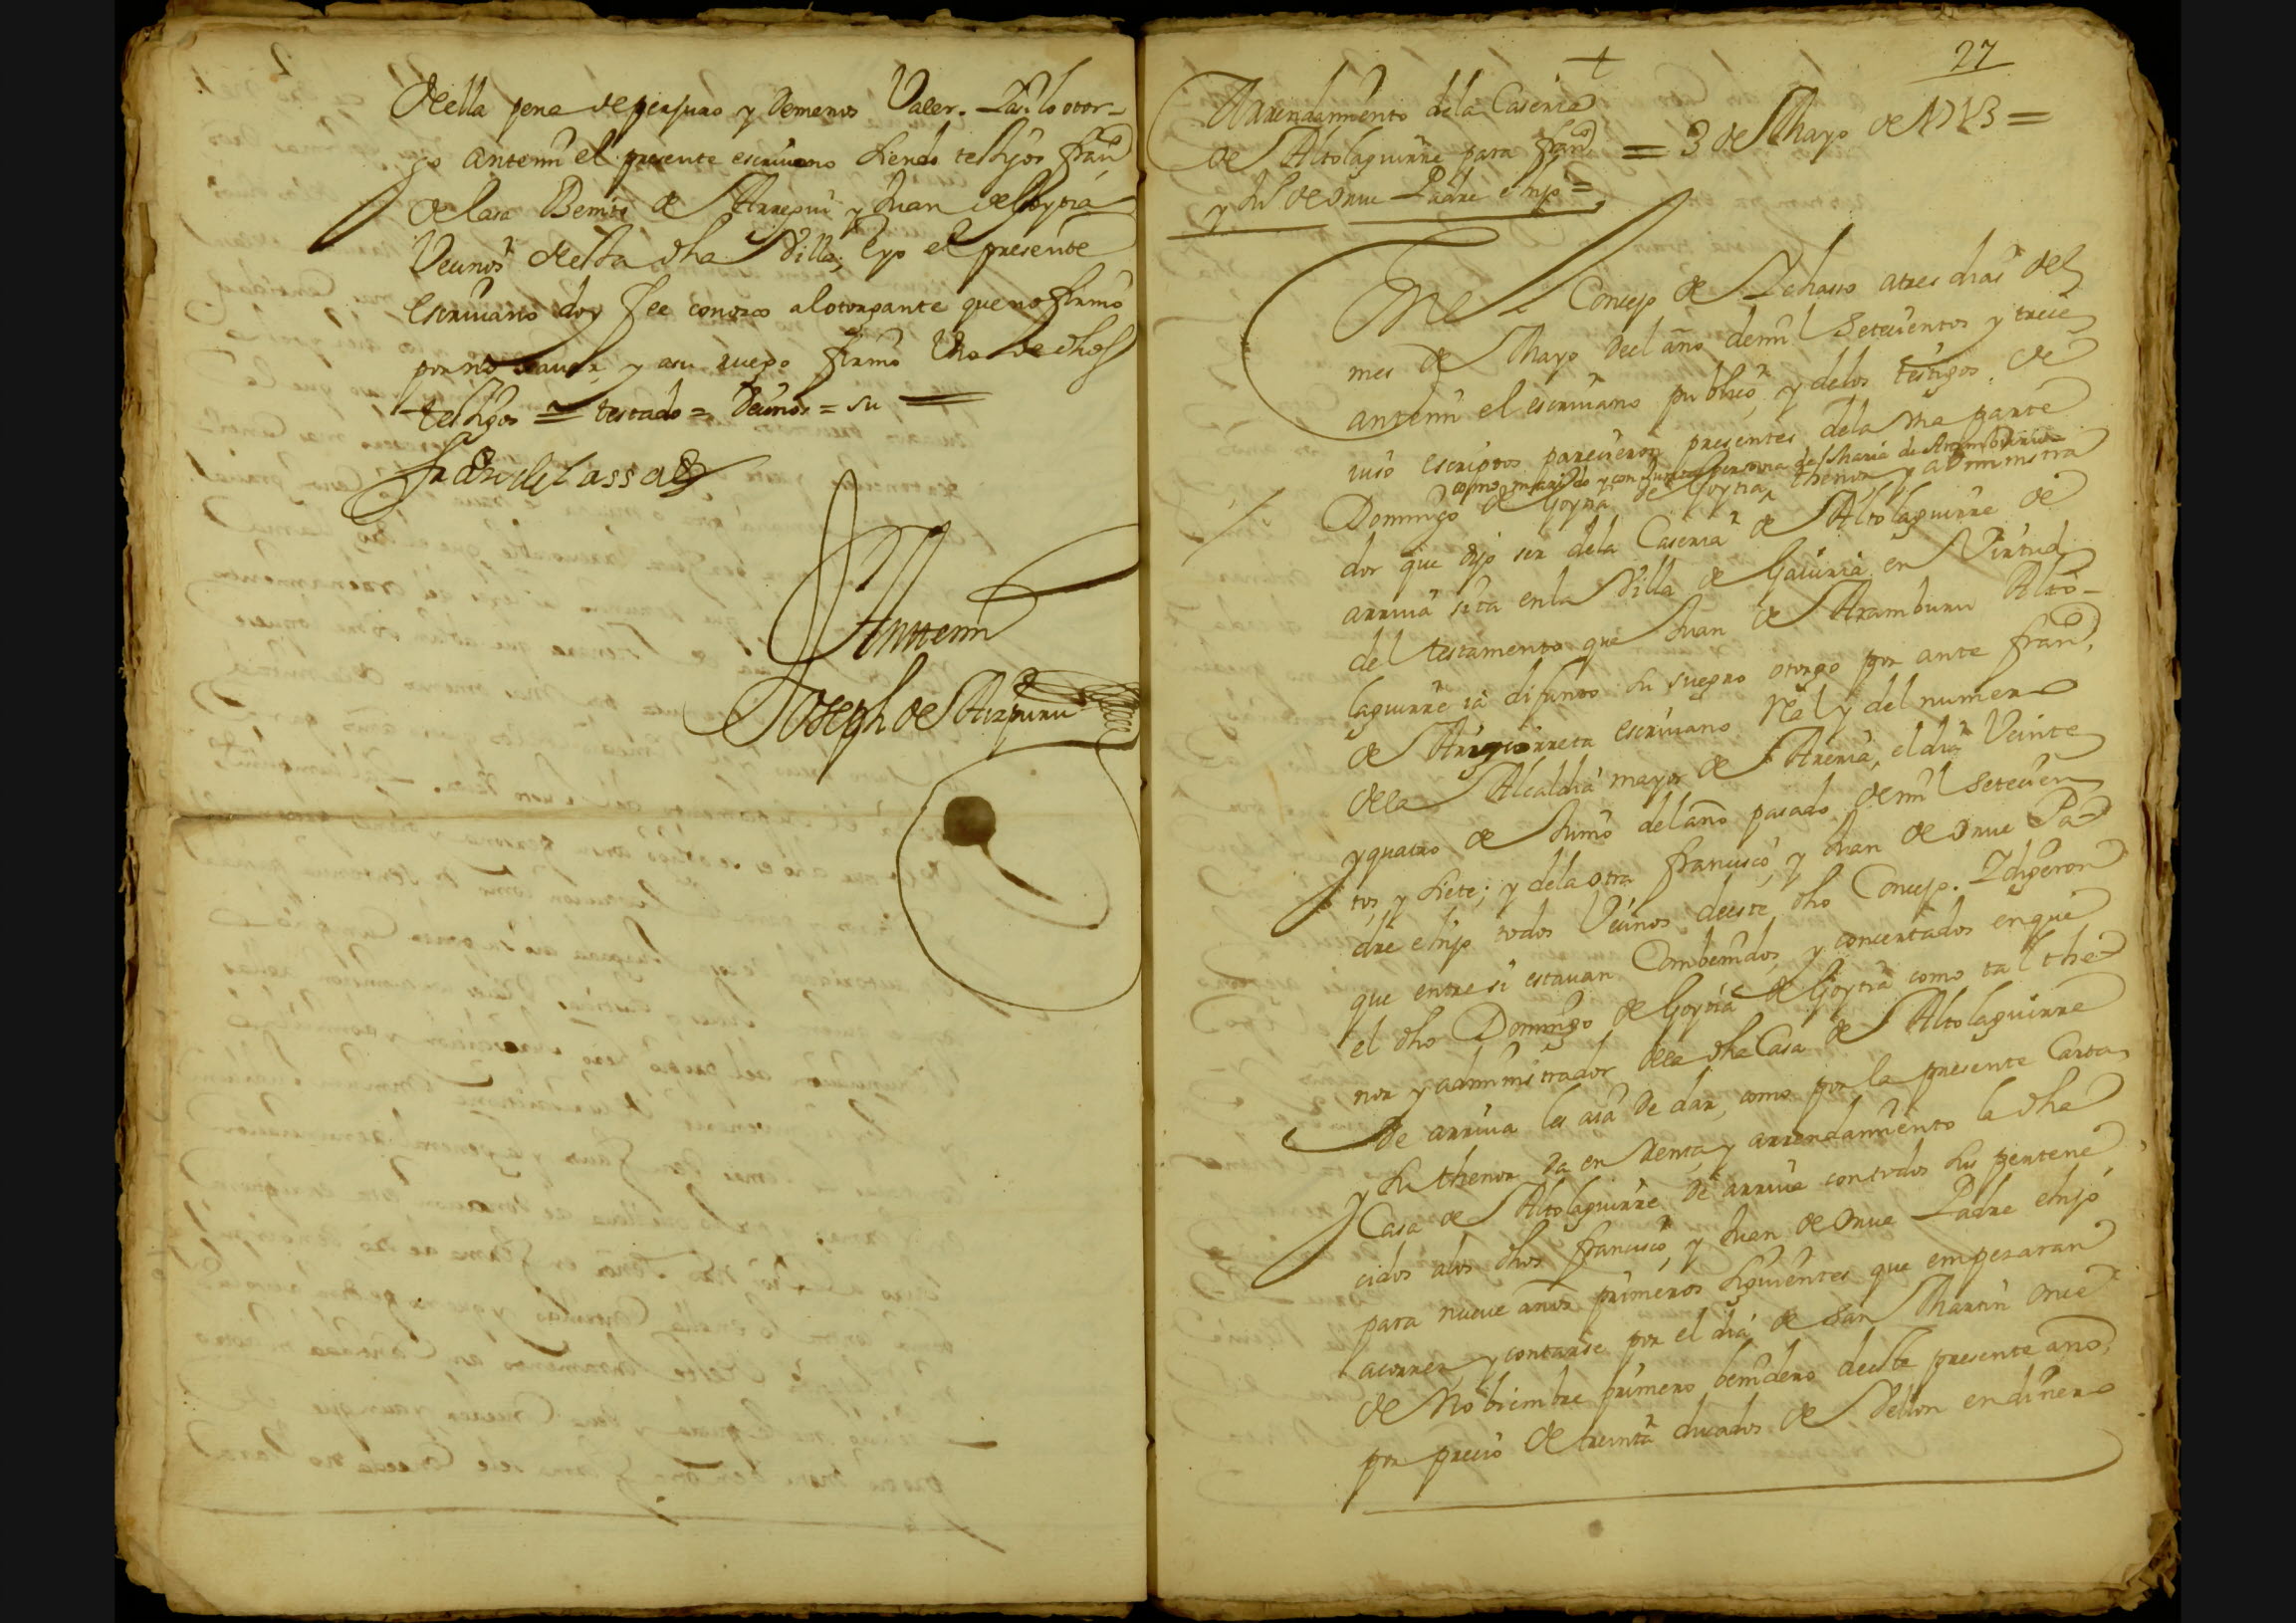 della pena de perjuro y de menos Valer. Y asi lo otor-
go antemi el presente escriuano siendo testigos fran.co
de lasa Benito de Arregui y Juan de Goytia
Vecinos desta dha Villa, E yo el presente
escriuano doy fee conozco al otorgante que no firmo
por no sauer, y a su ruego firmo Uno de dhos
testigos = testado = Vecinos = su =
Fran.co de Lassa
Anttemi
Joseph de Aizpuru
27
Arrendamiento de la Caseria
de Altolaguirre para fran.co = 3 de Mayo de 1713 =
y Ju.o de Orue Padre e hijo =
En el Concejo de Ichasso a tres dias del
mes de Mayo del año de mil Setecientos y trece
antemi el escriuano publico, y de los testigos de
iuso escriptos parecieron presentes, de la una parte
como marido y conjunta persona de Maria de Aramburu =
Domingo de Goytia de Goytia, thenor y administra
dor que dijo ser de la Caseria de Altolaguirre de
arriua sita en la Villa de Gauiria en Virtud
del testamento que Juan de Aramburu Alto-
laguirre ia difunto su suegro otorgo por ante fran.co
de escriuano Real y del numero
de la Alcaldia mayor de Areria, el dia Veinte
y quatro de Junio del año pasado de mil Setecien
tos, y siete; y de la otra francisco, y Juan de Orue Pa-
dre e hijo todos Vecinos deeste dho Concejo. I dixeron
que entre si estauan Combenidos, y concertados en que
el dho Domingo de Goytia de Goytia como tal the-
nor y administrador dela dha Casa de Altolaguirre
de arriua les aia de dar, como por la presente Carta
y su thenor da en Renta, y arrendamiento la dha
Casa de Altolaguirre de arriua con todos sus pertene
cidos a los dhos francisco, y Juan de Orue Padre e hijo
para nueue años primeros siguientes que empezaran
a correr, y contarse por el dia de San Martin Once
de Nobiembre primero benidero deeste presente año,
por precio de treinta ducados de Vellon en dinero